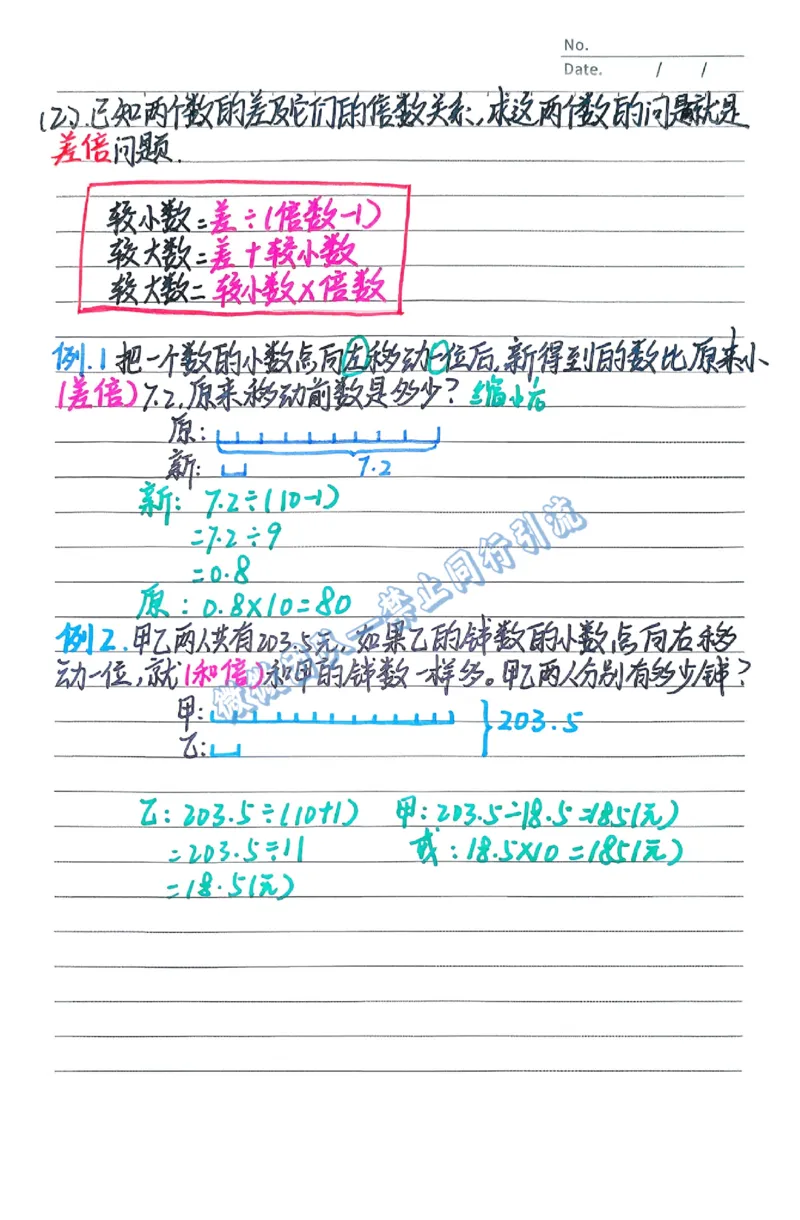 No.
Date. / /
(2).已知两个数的差及它们的倍数关系,求这两个数的问题就是
差倍问题.
较小数=差÷(倍数-1)
较大数=差+较小数
较大数=较小数×倍数
例.1 把一个数的小数点向左移动一位后,新得到的数比原来小
(差倍) 7.2,原来移动前数是多少? 缩小后
原:
新: 7.2
新: 7.2÷(10-1)
=7.2÷9
=0.8
原: 0.8×10=80
例2.甲乙两人共有203.5元,如果乙的钱数的小数点向右移
动一位,就(和倍)和甲的钱数一样多。甲乙两人分别有多少钱?
甲: 203.5
乙:
乙: 203.5÷(10+1) 甲: 203.5-18.5=185(元)
=203.5÷11 或: 18.5×10=185(元)
=18.5(元)
禁止同行引流